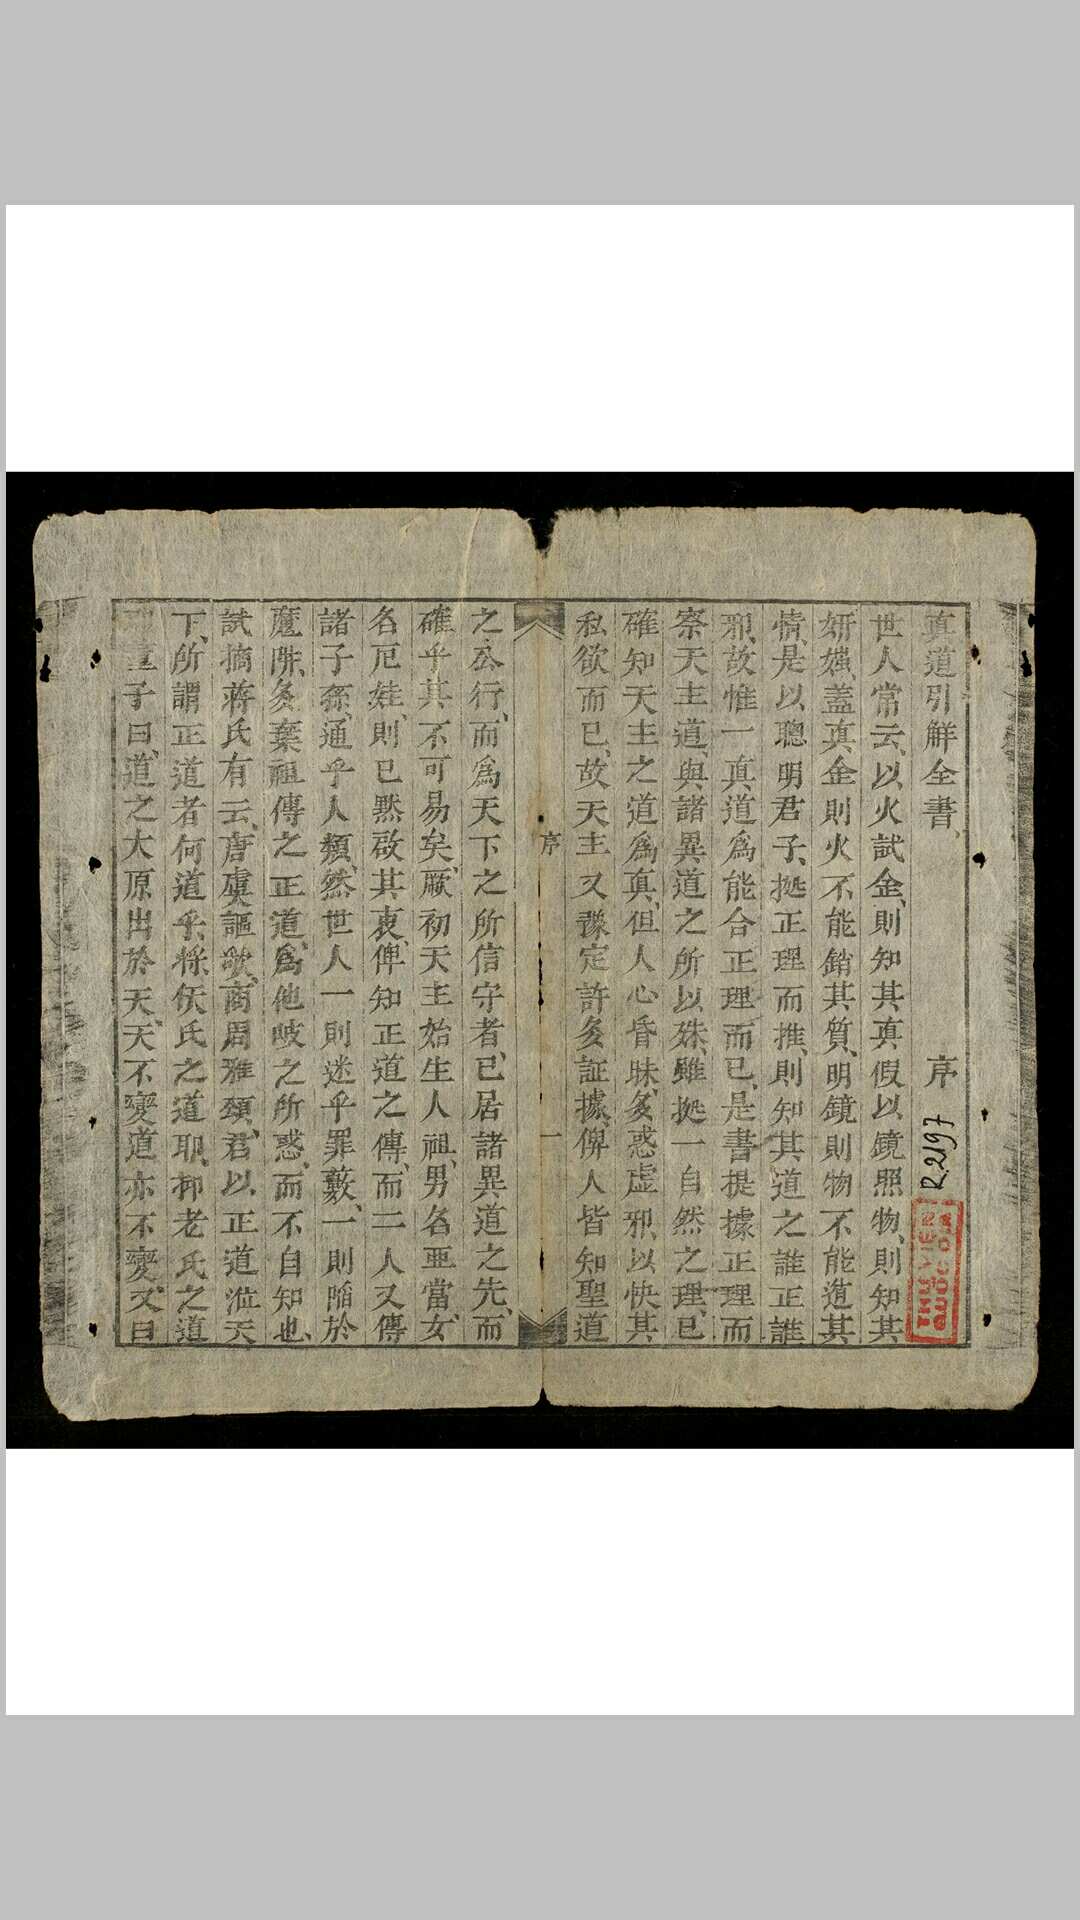 真道引解全書、 序
R.2197
THƯ VIỆN
QUỐC GIA
世人常云、以火試金、則知其真假以鏡照物、則知其
妍媸、蓋真金則火不能銷其質、明鏡則物不能遁其
情、是以聰明君子、㨗正理而推、則知其道之誰正誰
邪、故惟一真道爲能合正理而已、是書提據正理而
察天主道、與諸異道之所以殊、雖㨗一自然之理、已
確知天主之道爲真、但人心昏昧、多惑虛邪、以快其
私欲而已、故天主又豫定許多証據、俾人皆知聖道
序 一
之公行、而爲天下之所信守者、已居諸異道之先、而
確乎其不可易矣、厥初天主始生人祖、男名亞當、女
名厄娃、則已黙啟其衷、俾知正道之傳、而二人又傳
諸子孫、通乎人類、然世人一則迷乎罪藪、一則陷於
魔阱、多棄祖傳之正道、爲他岐之所惑、而不自知也、
試摘蒋氏有云、唐虞謳歌、商周雅頌、君以正道涖天
下、所謂正道者何道乎、將佛氏之道耶、抑老氏之道
董子曰、道之大原出於天、天不變道亦不變、又曰